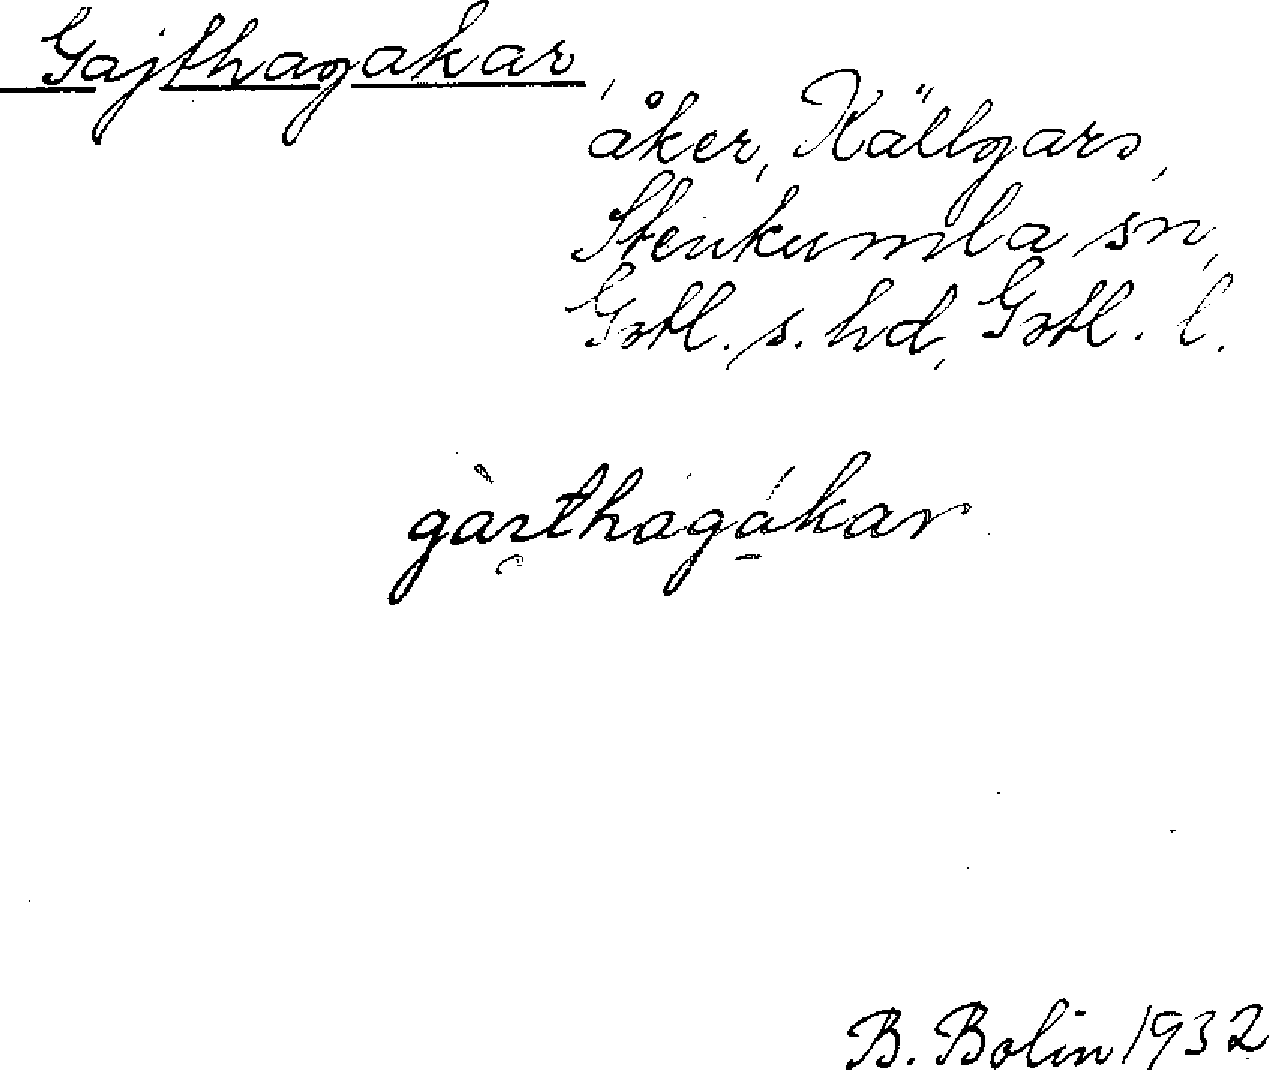 Gajthagakar,
åker, Källgars,
Stenkumla sn,
Gotl. s. hd, Gotl. l.
gàɪ̯thagákar
B. Bolin 1932